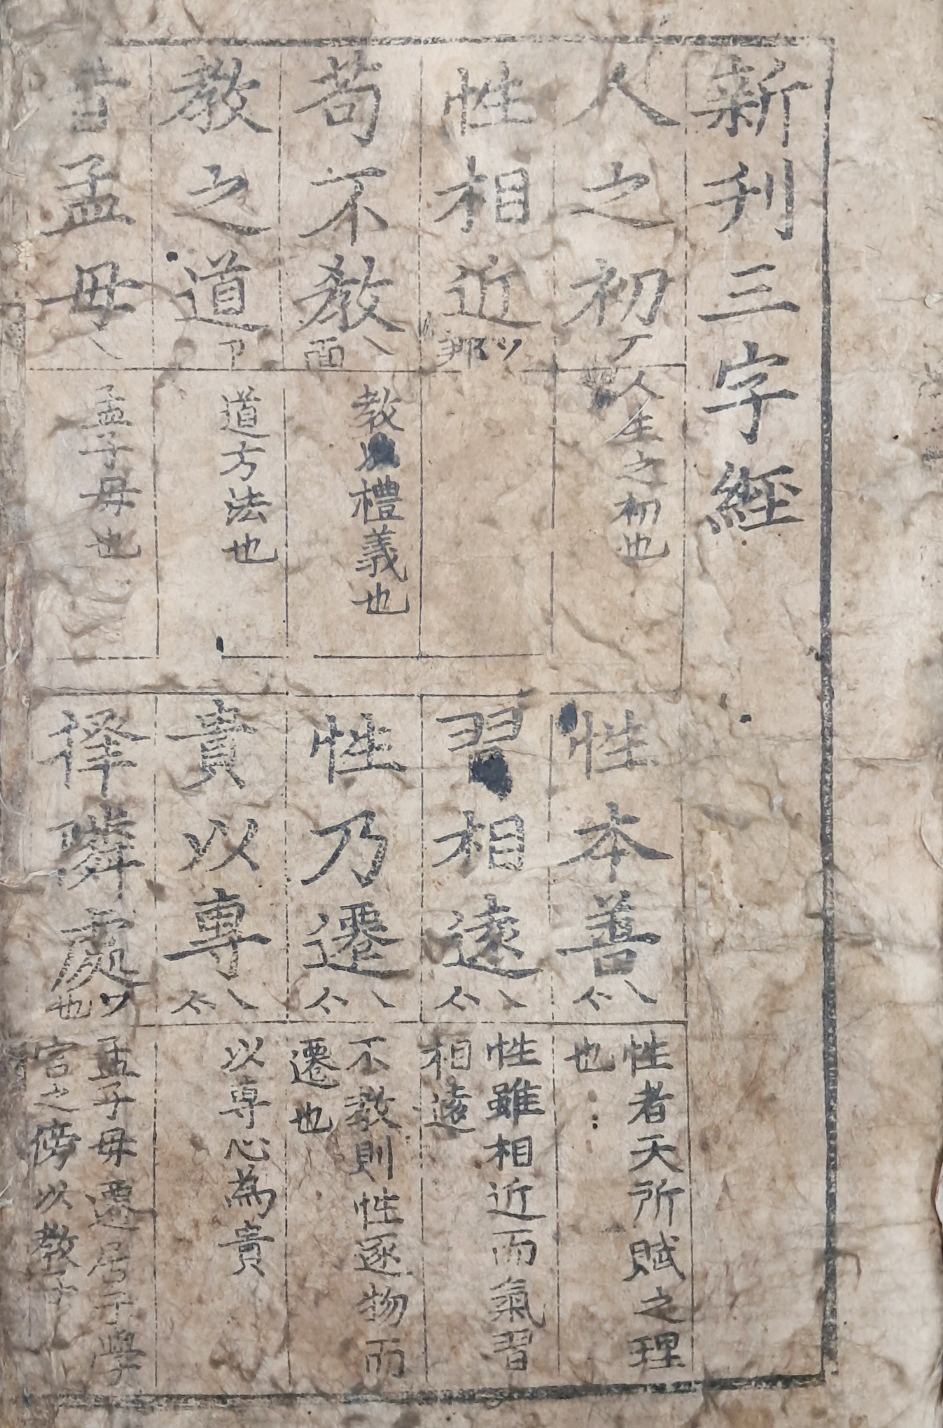 新刋三字經
人之初丆
人生之初也
性本善丶亽
性者天所賦之理
也
性相近ソ那
習相遠丶亽
性雖相近而氣習
相遠
苟不教丶面
教以禮義也
性乃遷丶亽
不教則性逐物而
遷也
教之道卩
道方法也
貴以専丶亽
以専心為貴
昔孟母丶
孟子母也
择隣處ソ也
孟子母遷居于學
宮之傍以教子